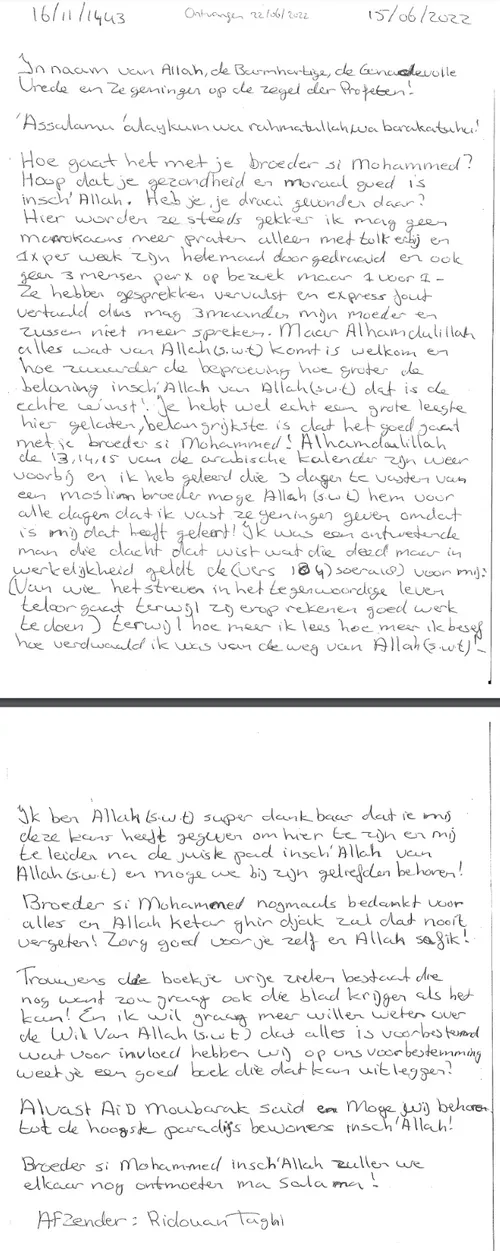 16/11/1443 Ontvangen 22/06/2022 15/06/2022
In naam van Allah, de Barmhartige, de Genadevolle
Vrede en Zegeningen op de zegel der Profeten!
'Assalamu 'alaykum wa rahmatullah wa barakatuhu!
Hoe gaat het met je broeder si Mohammed?
Hoop dat je gezondheid en moraal goed is
insch'Allah. Heb je, je draai gevonden daar?
Hier worden ze steeds gekker ik mag geen
marrokaans meer praten alleen met tolk erbij en
1x per week zijn helemaal doorgedraaid en ook
geen 3 mensen per x op bezoek maar 1 voor 1-
Ze hebben gesprekken vervalst en express fout
vertaald dus mag 3 maanden mijn moeder en
zussen niet meer spreken. Maar Alhamdulillah
alles wat van Allah (s.w.t) komt is welkom en
hoe zwaarder de beproeving hoe groter de
beloning insch'Allah van Allah (s.w.t) dat is de
echte winst! Je hebt wel echt een grote leegte
hier gelaten, belangrijkste is dat het goed gaat
met je broeder si Mohammed! Alhamdoulillah
de 13, 14, 15 van de arabische kalender zijn weer
voorbij en ik heb geleerd die 3 dagen te vasten van
een moslim broeder moge Allah (s.w.t) hem voor
alle dagen dat ik vast zegeningen geven omdat
is mij dat heeft geleerd! Ik was een onwetende
man die dacht dat wist wat die deed maar in
werkelijkheid geldt de (vers 104) voor mij:
(Van wie het streven in het tegenwoordige leven
teloor gaat terwijl zij erop rekenen goed werk
te doen) terwijl hoe meer ik lees hoe meer ik besef
hoe verdwaald ik was van de weg van Allah (s.w.t)!-
Ik ben Allah (s.w.t) super dankbaar dat ie mij
deze kans heeft gegeven om hier te zijn en mij
te leiden na de juiste pad insch'Allah van
Allah (s.w.t) en moge we bij zijn geliefden behoren!
Broeder si Mohammed nogmaals bedankt voor
alles en Allah ketar ghir djak zal dat nooit
vergeten! Zorg goed voor je zelf en Allah safik!
Trouwens die boekje vrije zielen bestaat die
nog want zou graag ook die blad krijgen als het
kan! En ik wil graag meer willen weten over
de Wil Van Allah (s.w.t) dat alles is voorbestemd
wat voor invloed hebben wij op ons voorbestemming
weet je een goed boek die dat kan uitleggen?
Alvast AiD Moubarak said en Moge wij behoren
tot de hoogste paradijs bewoners insch'Allah!
Broeder si Mohammed insch'Allah zullen we
elkaar nog ontmoeten ma salama!
Afzender: Ridouan Taghi